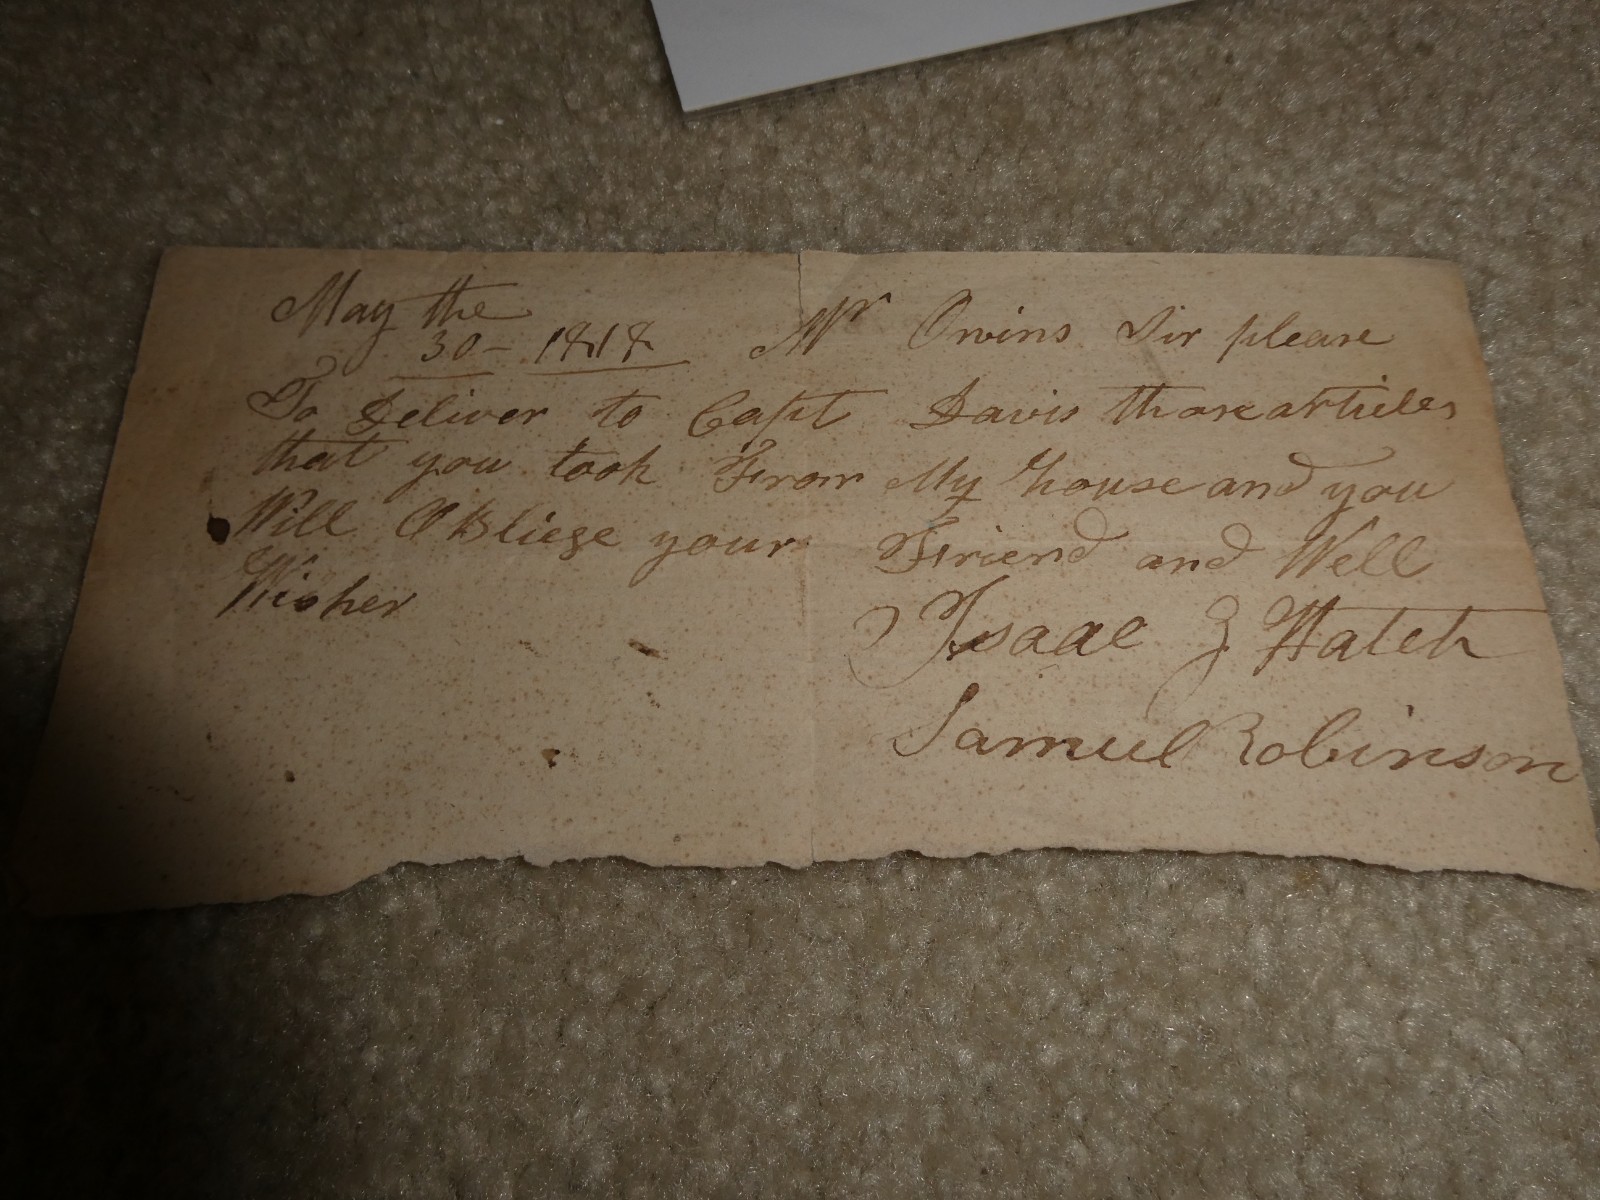 May the
30 - 1818 Mr Owins Sir please
To Deliver to Capt Davis those articles
that you took From My house and you
Will Obliege your Friend and Well
Wisher
Isaac J Hatch
Samuel Robinson